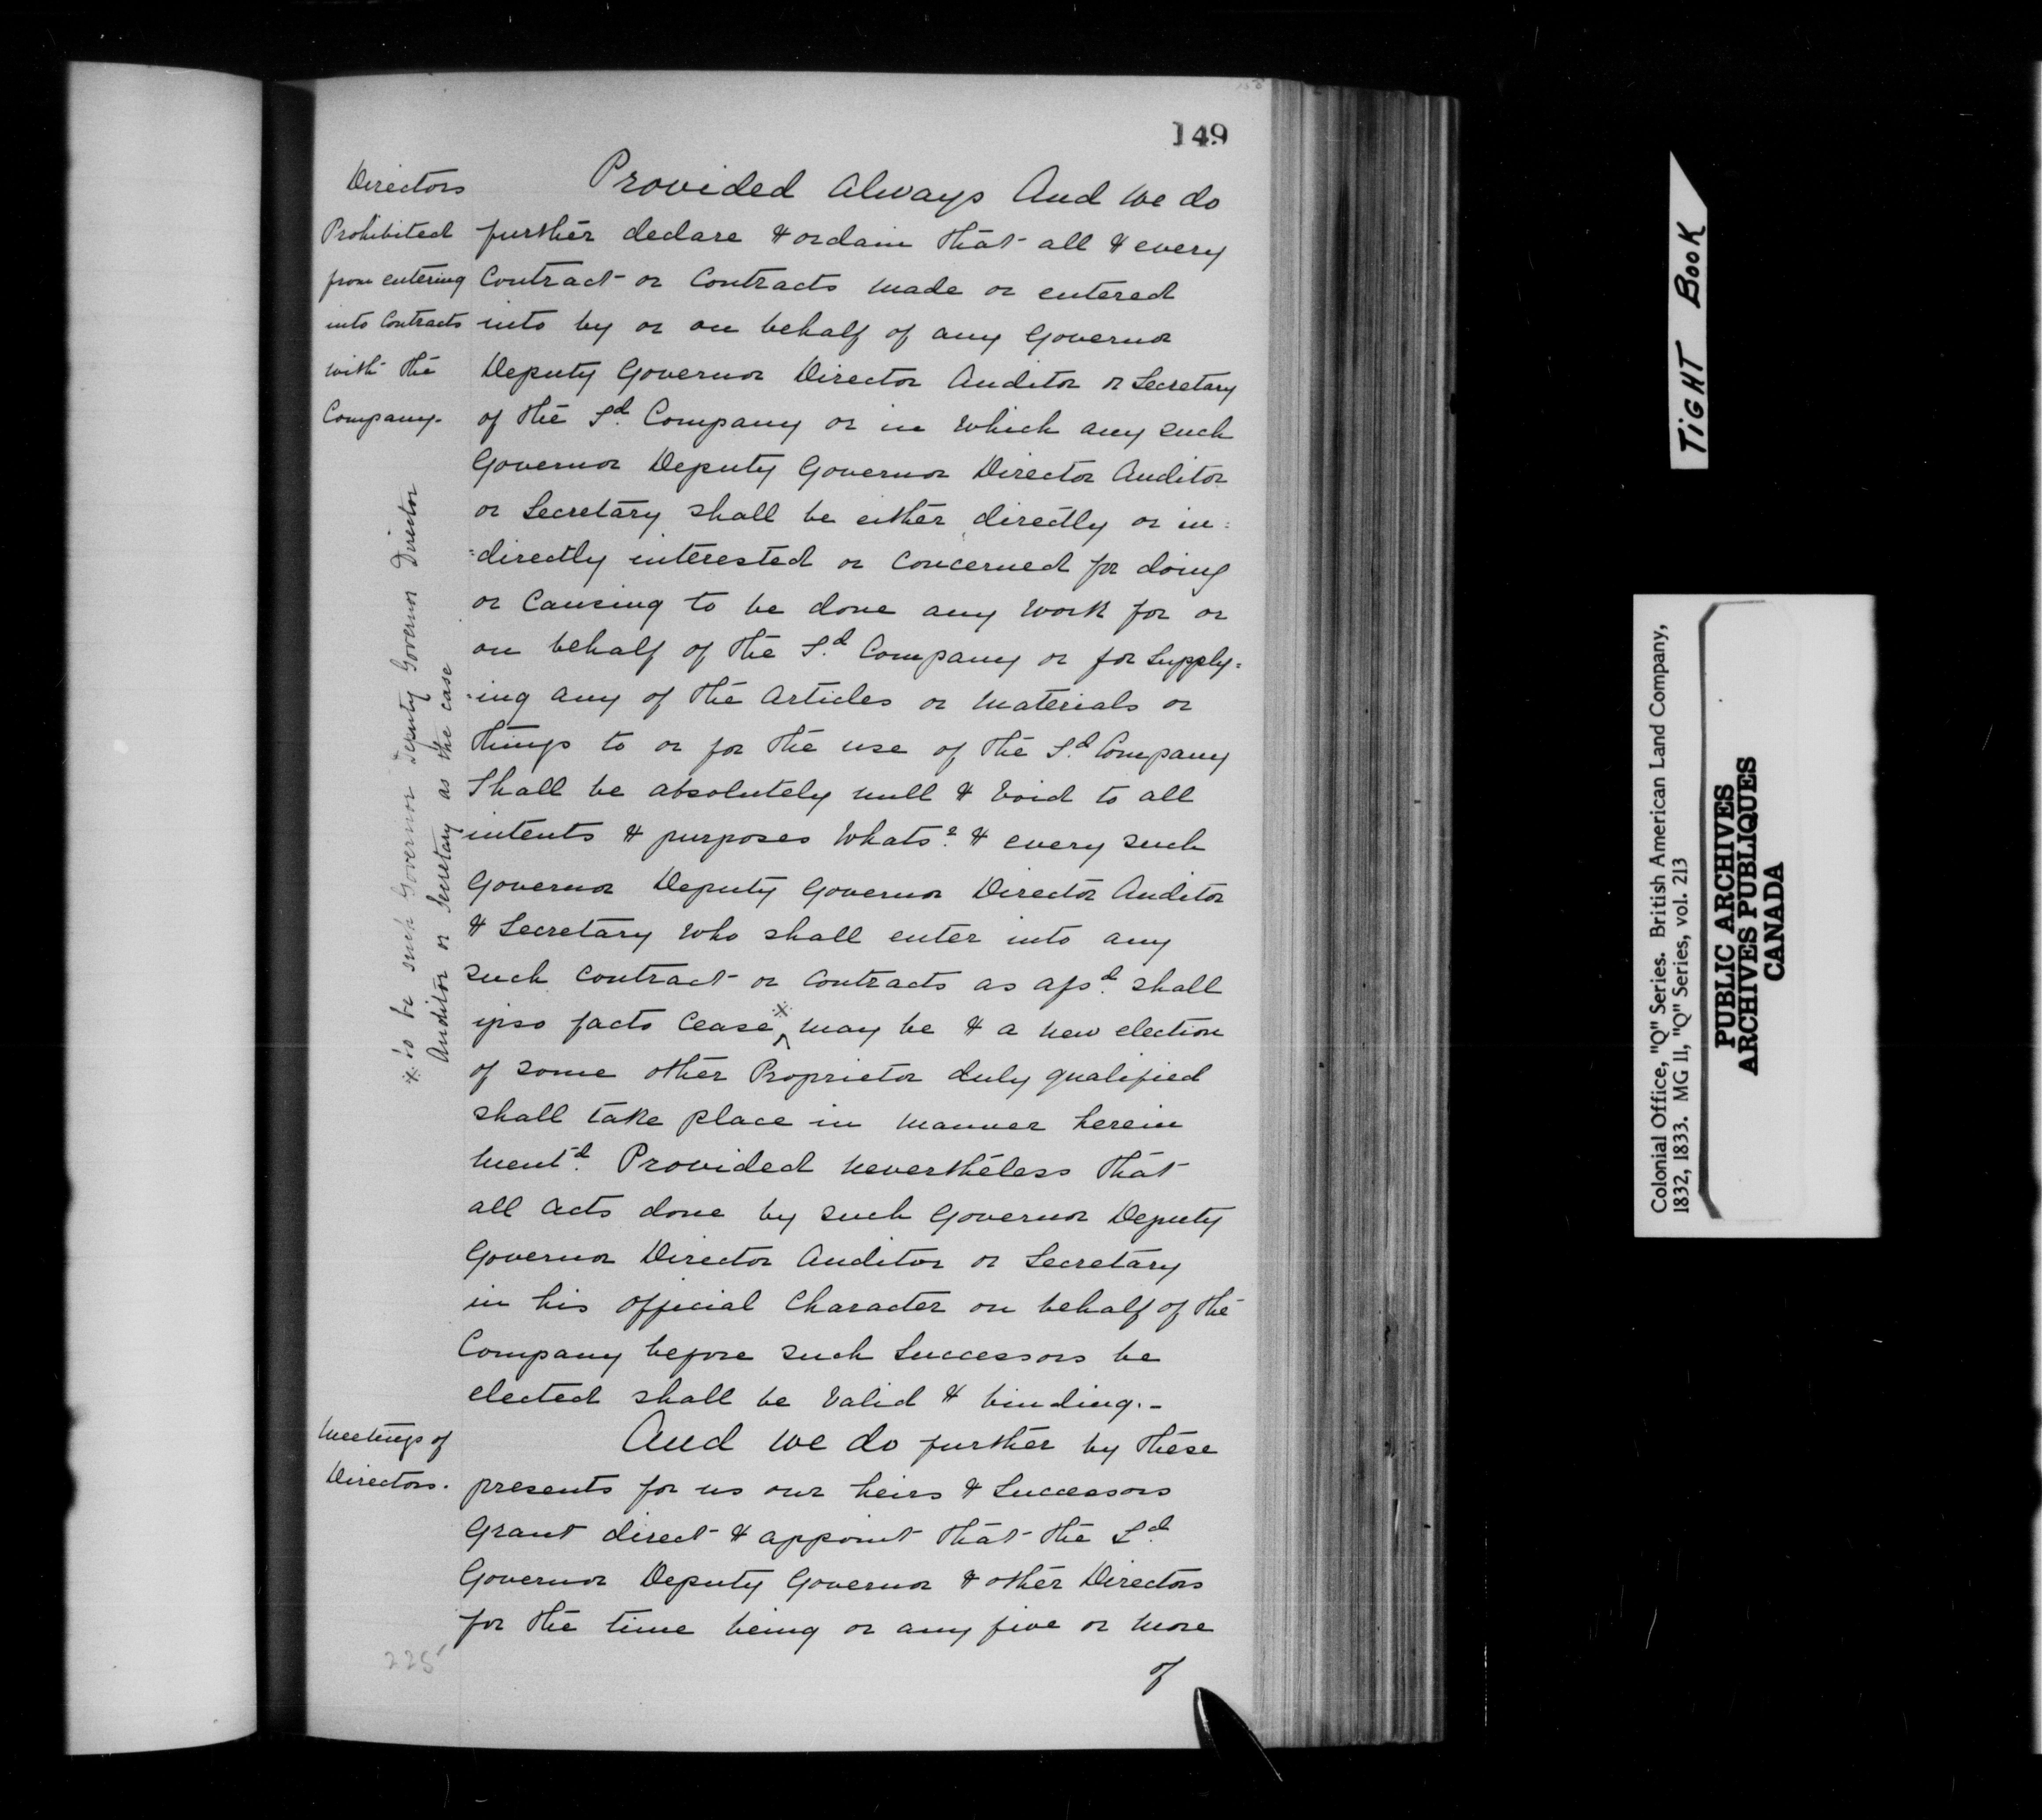 149
Directors
Prohibited
from entering
into Contracts
with the
Company.
Provided always And we do
further declare & ordain that all & every
Contract or Contracts made or entered
into by or on behalf of any Governor
Deputy Governor Director Auditor or Secretary
of the Sd. Company or in which any such
Governor Deputy Governor Director Auditor
or Secretary shall be either directly or in=
=directly interested or concerned for doing
or Causing to be done any work for or
on behalf of the Sd. Company or for Supply=
=ing any of the Articles or materials or
things to or for the use of the Sd. Company
Shall be absolutely null & void to all
intents & purposes Whatsr. & every such
Governor Deputy Governor Director Auditor
& Secretary who shall enter into any
such contract or contracts as afsd. shall
ipso facto cease x may be & a new election
of some other Proprietor duly qualified
shall take place in manner herein
mentd. Provided nevertheless that
all acts done by such Governor Deputy
Governor Director Auditor or Secretary
in his official Character on behalf of the
Company before such Successors be
elected shall be valid & binding.-
x to be such Governor Deputy Governor Director
Auditor or Secretary as the case
Meetings of
Directors.
And we do further by these
presents for us our heirs & Successors
Grant direct & appoint that the Sd.
Governor Deputy Governor & other Directors
for the time being or any five or more
of
225
TIGHT BOOK
Colonial Office, "Q" Series. British American Land Company,
1832, 1833. MG 11, "Q" Series, vol. 213
PUBLIC ARCHIVES
ARCHIVES PUBLIQUES
CANADA